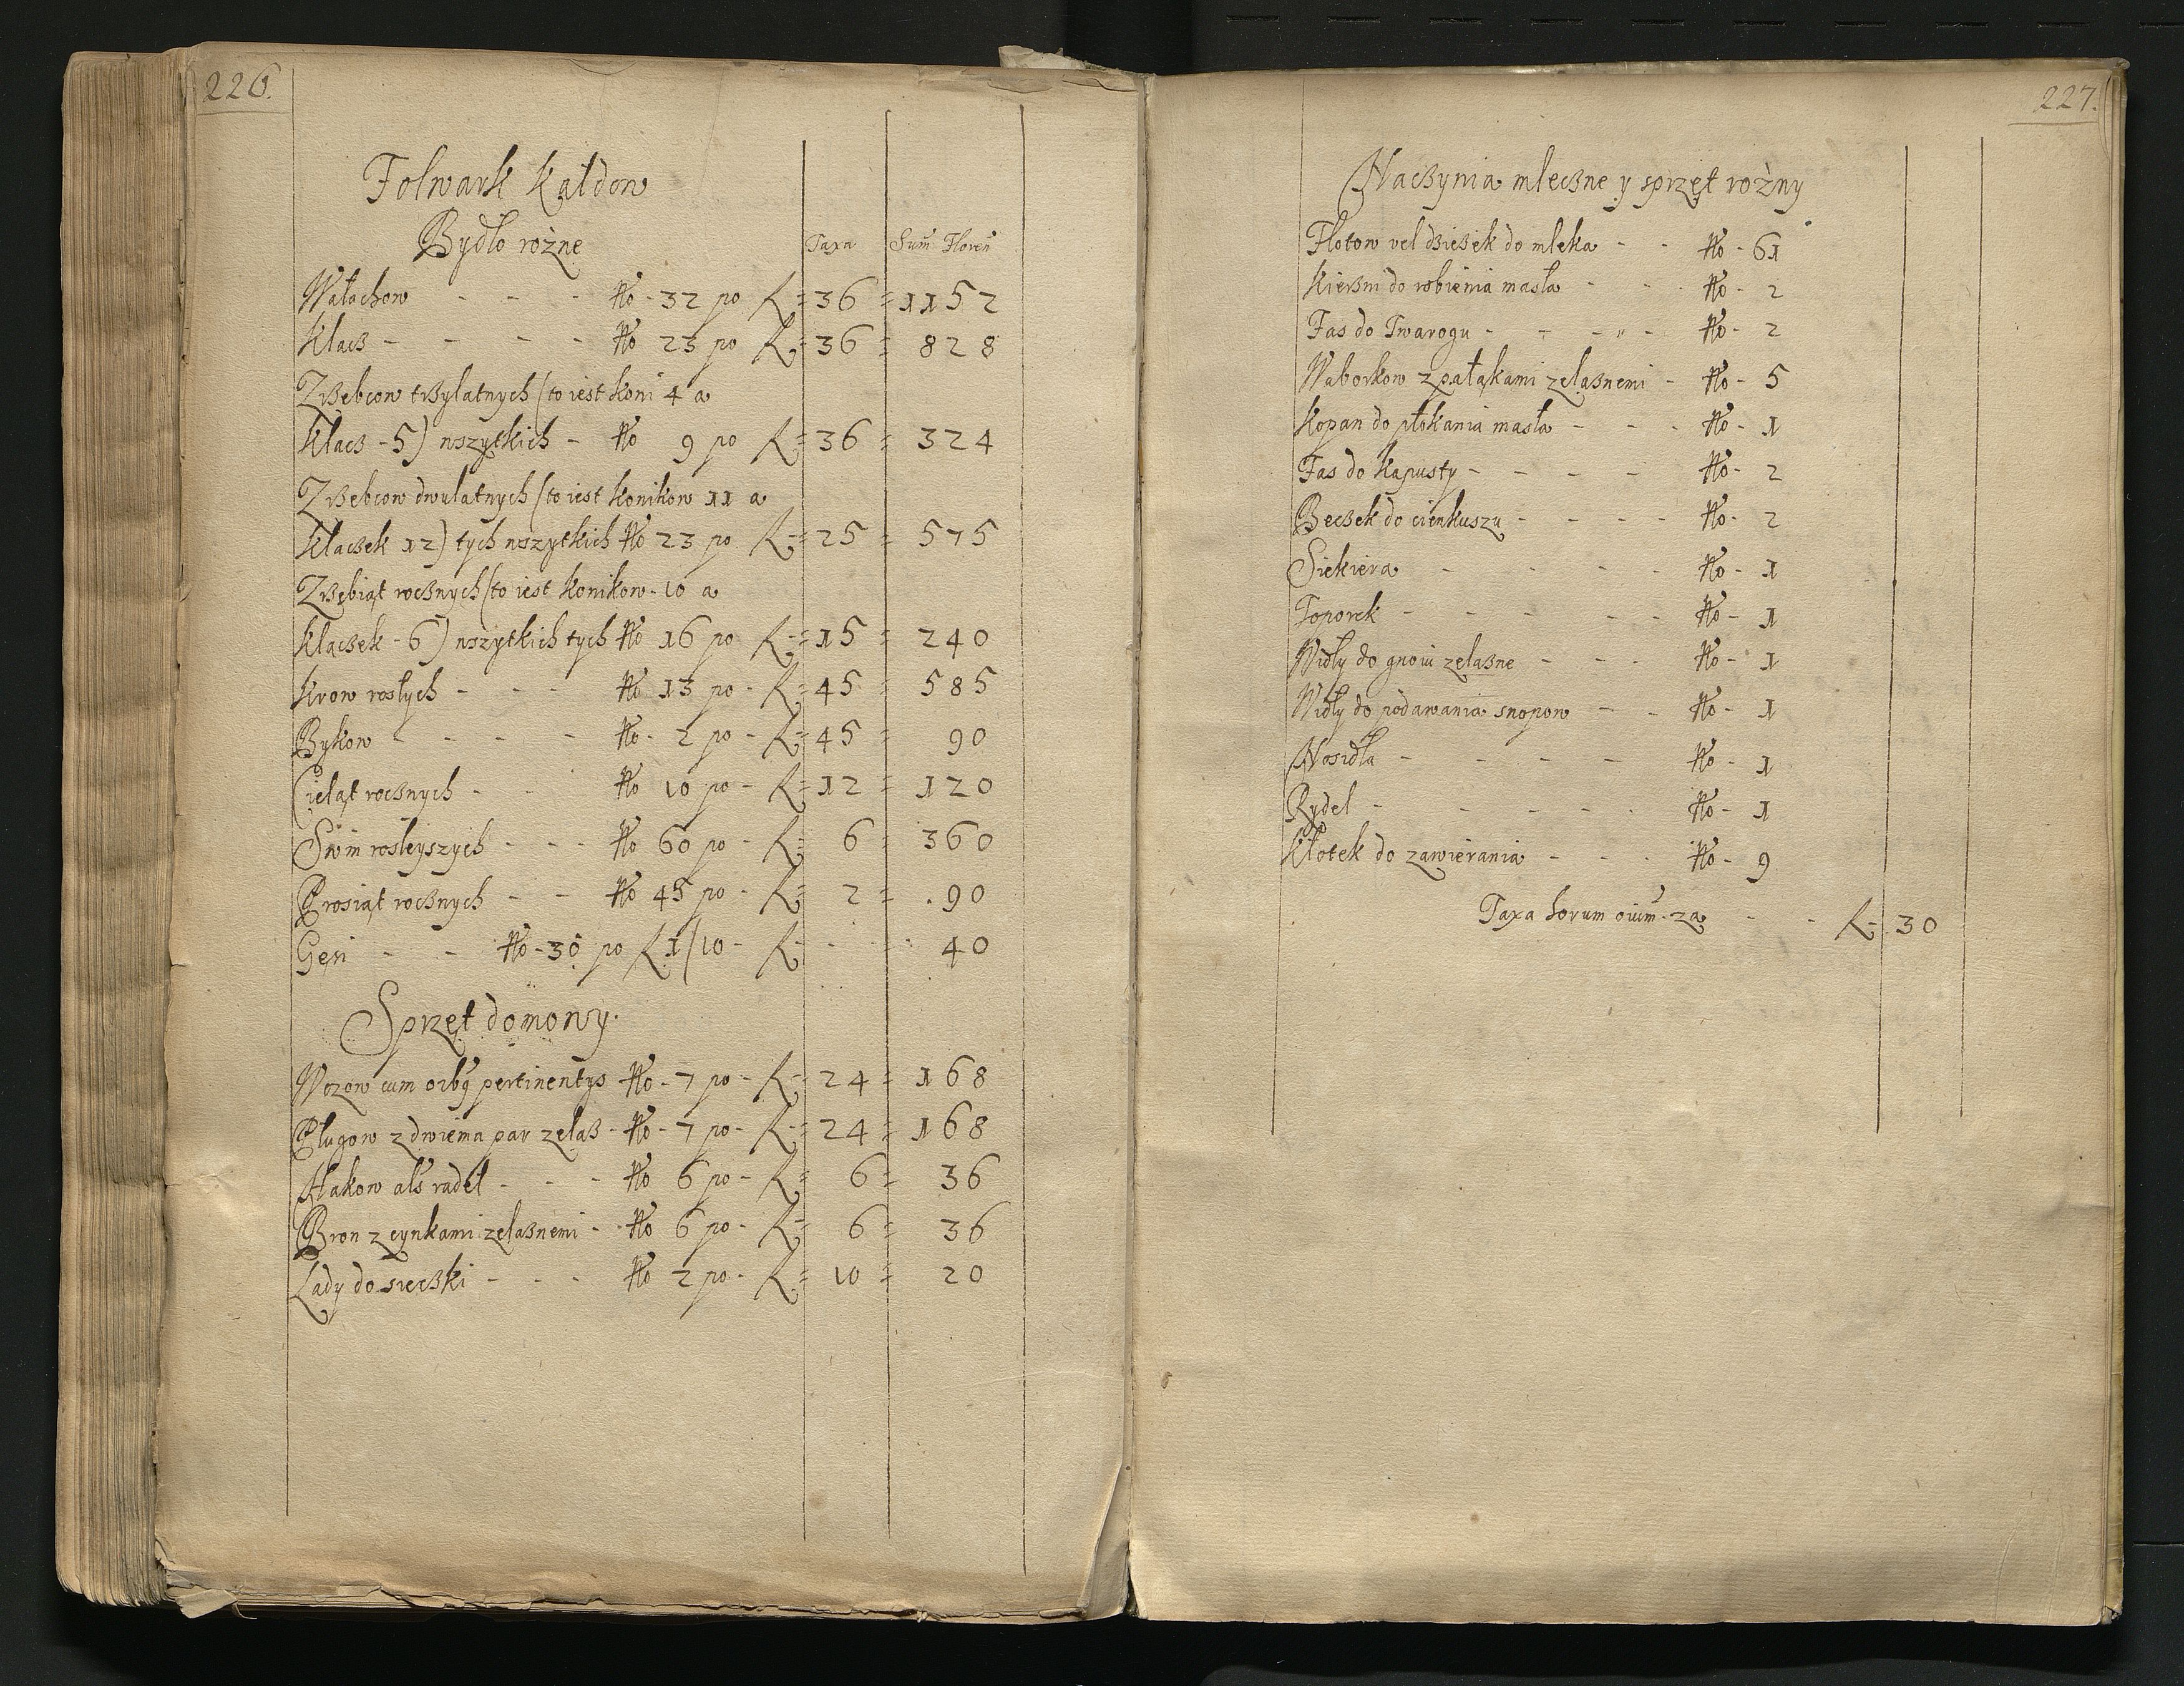 226.
Folwark Kałdow
Bydło rożne
Taxa Sum̃ Floreñ
Wałachow - - - No - 32 po fl = 36 = 1152
Klacz - - - - No 23 po fl = 36 = 828
Zrzebcow trzylatnych (to iest koni 4 a
Klacz - 5) wszytkich - No 9 po fl = 36 = 324
Zrzebcow dwulatnych (to iest konikow 11 a
Klaczek 12) tych wszytkich No 23 po fl = 25 = 575
Zrzebiąt rocznych (to iest konikow - 10 a
Klaczek - 6) wszytkich tych No 16 po fl = 15 = 240
Krow rosłych - - - No 13 po - fl = 45 = 585
Bykow - - - - No - 2 po - fl = 45 = 90
Cieląt rocznych - - No 10 po - fl = 12 = 120
Swiñ rosleyszych - - - No 60 po - fl = 6 = 360
Prosiąt rocznych - - No 45 po - fl = 2 = 90
Gęsi - - No - 30 po fl 1/10 - fl - - = 40
Sprzęt domowy.
Wozow cum oibg pertinentys No - 7 po - fl = 24 = 168
Pługow z dwiema par zelaz - No - 7 po - fl = 24 = 168
Hakow als radeł - - - No 6 po - fl = 6 = 36
Bron z cynkami zelaznemi - No 6 po - fl = 6 = 36
Lady do sieczki - - - No 2 po - fl = 10 = 20
227.
Naczynia mleczne y sprzęt rożny
Flotow vel dzieżek do mleka - - No - 61
Kierzni do robienia masła - - - No - 2
Fas do Twarogu - - - - No - 2
Waborkow z pałąkami zelaznemi - No - 5
Kopan do płokania masła - - - No - 1
Fas do kapusty - - - - No - 2
Beczek do cienkuszu - - - - No - 2
Siekiera - - - - No - 1
Toporek - - - - - No - 1
Widły do gnoiu zelazne - - - No - 1
Widły do podawania snopow - - No - 1
Nosidła - - - - No - 1
Rydel - - - - - No - 1
Kłotek do zawierania - - - No - 9
Taxa horum oium - za - - fl - 30